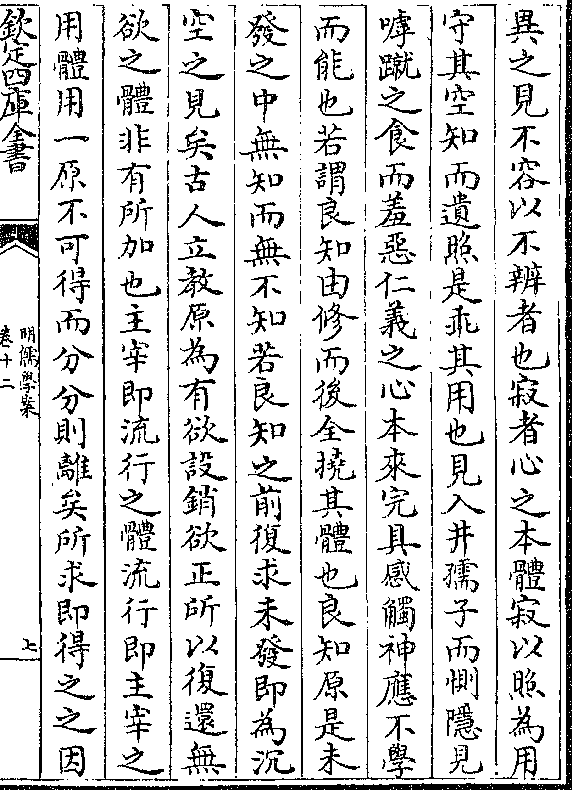 異之見不容以不辨者也寂者心之本體寂以照為用
守其空知而遺照是乖其用也見入井孺子而惻隱見
嘑蹴之食而羞惡仁義之心本來完具感觸神應不學
而能也若謂良知由修而後全撓其體也良知原是未
發之中無知而無不知若良知之前復求未發即為沉
空之見矣古人立教原為有欲設銷欲正所以復還無
欲之體非有所加也主宰即流行之體流行即主宰之
用體用一原不可得而分分則離矣所求即得之之因
欽定四庫全書
明儒學案
卷十二
七